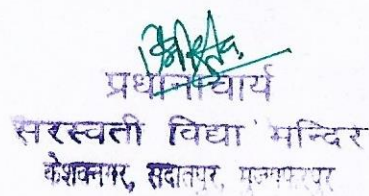 प्रधानाचार्य
सरस्वती विद्या मन्दिर
केशवनगर, सदातपुर, मुजफ्फरपुर